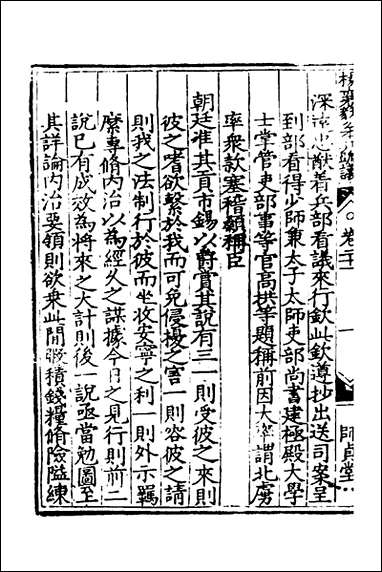 楊襄毅公本兵疏議 卷二十一 一 師貞堂
深遠忠猷着兵部看議來行欽此欽遵抄出送司案呈
到部看得少師兼太子太師吏部尚書建極殿大學
士掌管吏部事等官高拱等題稱前因大率謂北虜
率衆款塞稽顙稱臣
朝廷准其貢市錫以爵賞其說有三一則受彼之來則
彼之嗜欲繫於我而可免侵擾之害一則容彼之請
則我之法制行於彼而坐收安寧之利一則外示羈
縻專脩內治以為經久之謀據今日之見行則前二
說已有成效為將來之大計則後一說亟當勉圖至
其詳論內治要領則欲乘此閒暇積錢糧脩險隘練